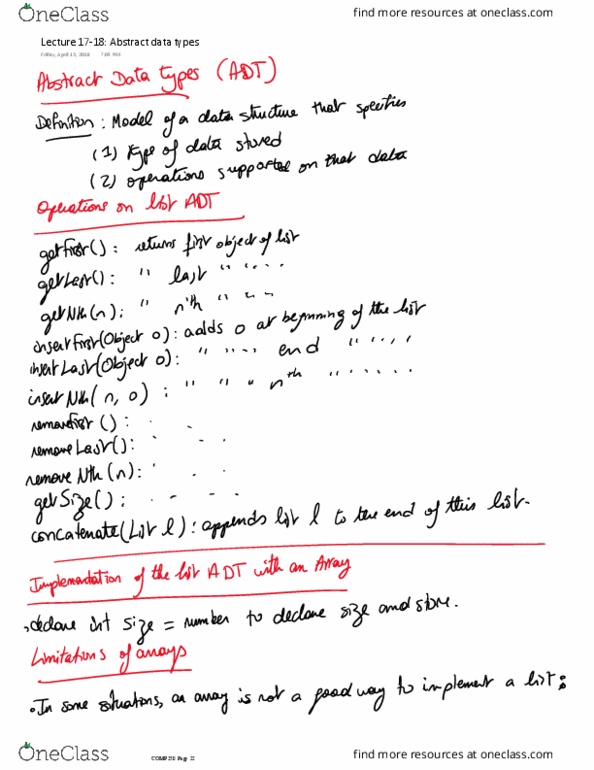 OneClass
find more resources at oneclass.com
Lecture 17-18: Abstract data types
Friday, April 13, 2018
Abstract Data types (ADT)
Definition: Model of a data structure that specifies
(1) type of data stored
(2) operations supported on that data
Operations on list ADT
getFirst(): returns first object of list
getLast(): " last " " " "
getNth(n): " n'th " " "
insertFirst(Object o): adds o at beginning of the list
insertLast(Object o): " " " " end " " " "
insertNth(n, o): " " " nth " " " " "
removeFirst():
removeLast():
removeNth(n):
getSize():
concatenate(List l): appends list l to the end of this list.
Implementation of the list ADT with an Array
declare int size = number to declare size and store.
Limitations of arrays
. In some situations, an array is not a good way to implement a list:
OneClass
COMP250 Page
find more resources at oneclass.com